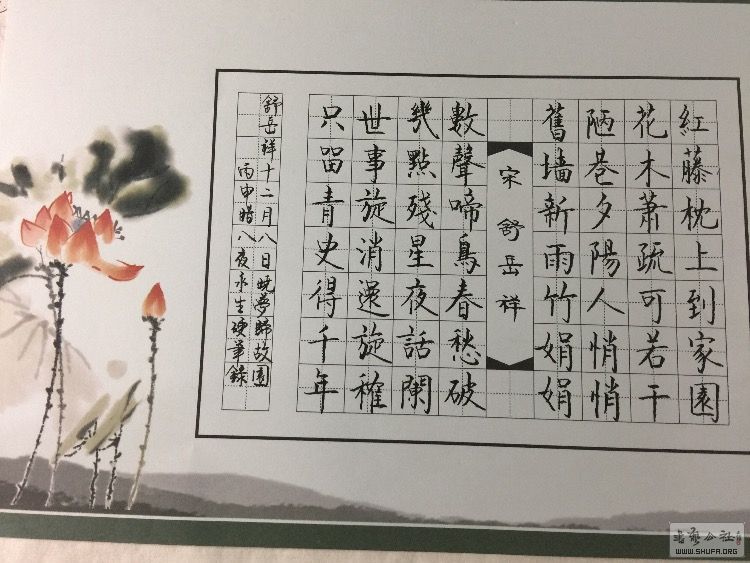 紅藤枕上到家園
花木蕭疏可若干
陋巷夕陽人悄悄
舊墙新雨竹娟娟
宋舒岳祥
數聲啼鳥春愁破
幾點殘星夜話闌
世事旋消還旋稚
只留青史得千年
舒岳祥十二月八日晓夢歸故園
丙申腊八夜永生硬筆錄
WWW.SHUFA.ORG